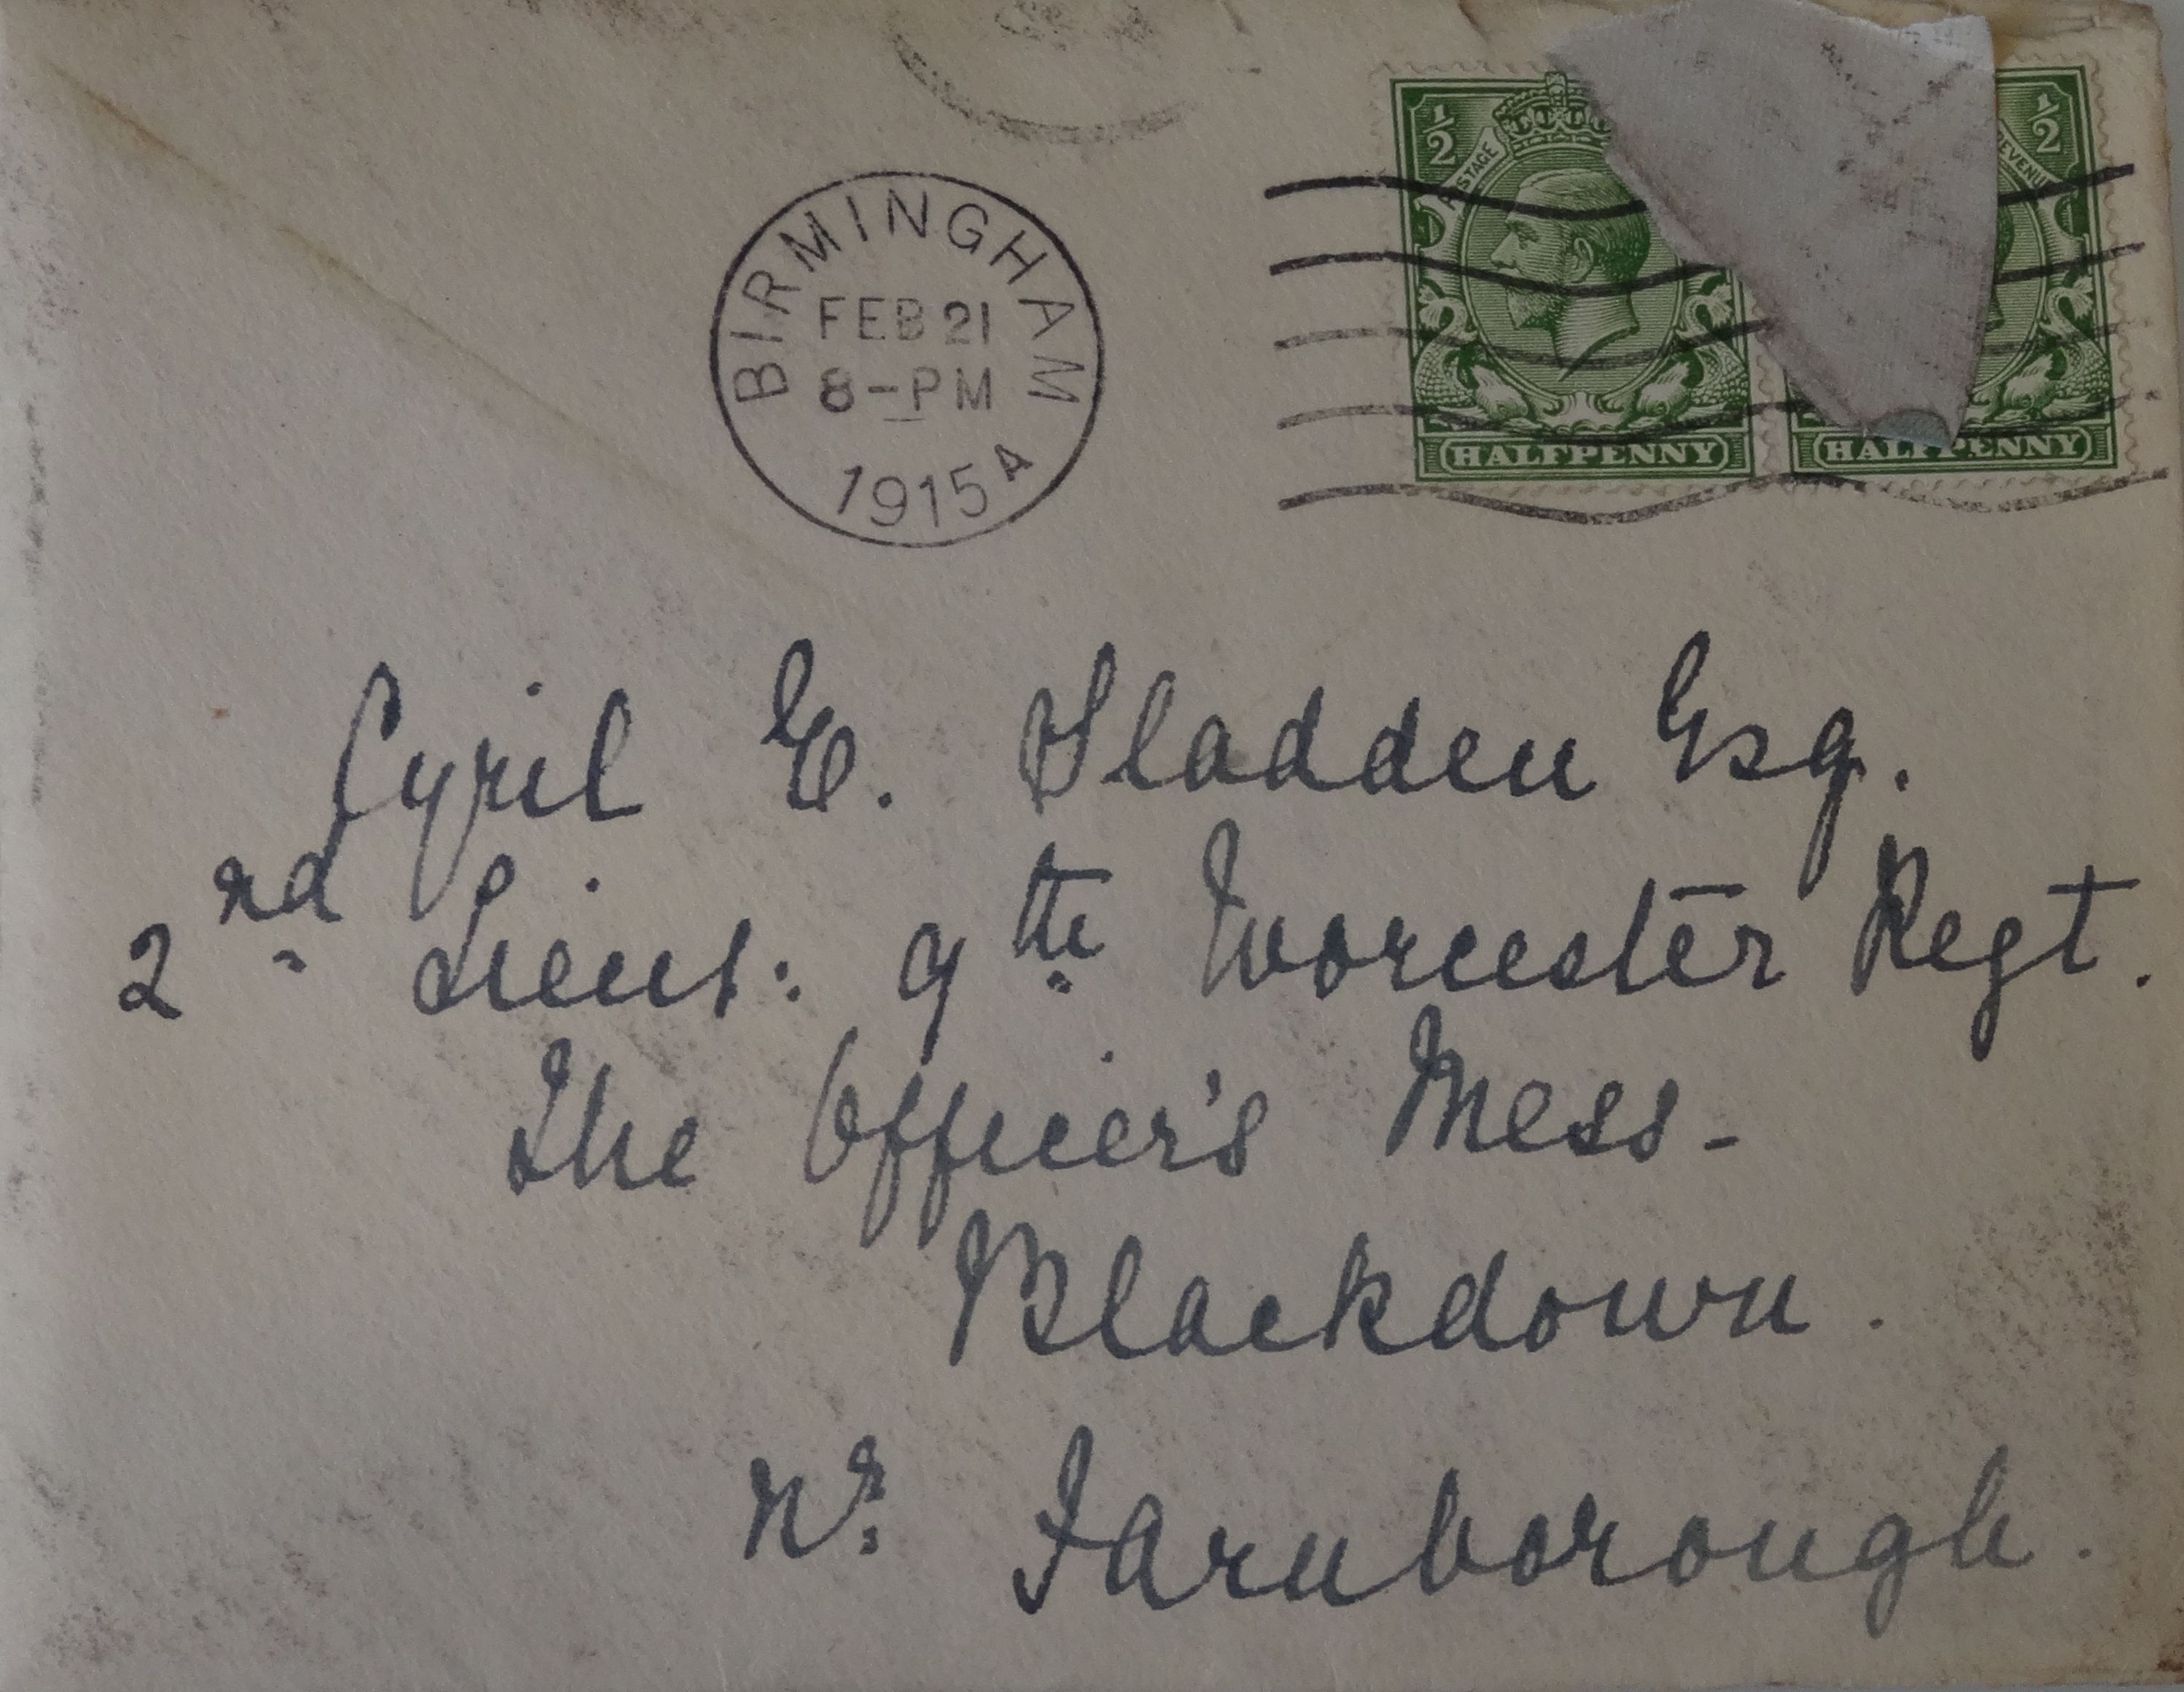 BIRMINGHAM
FEB 21
8-PM
1915 A
½ POSTAGE
HALFPENNY
REVENUE ½
HALFPENNY
Cyril E. Sladden Esq.
2nd Lieut: 9th Worcester Regt.
The Officer's Mess-
Blackdown.
Nr. Farnborough.